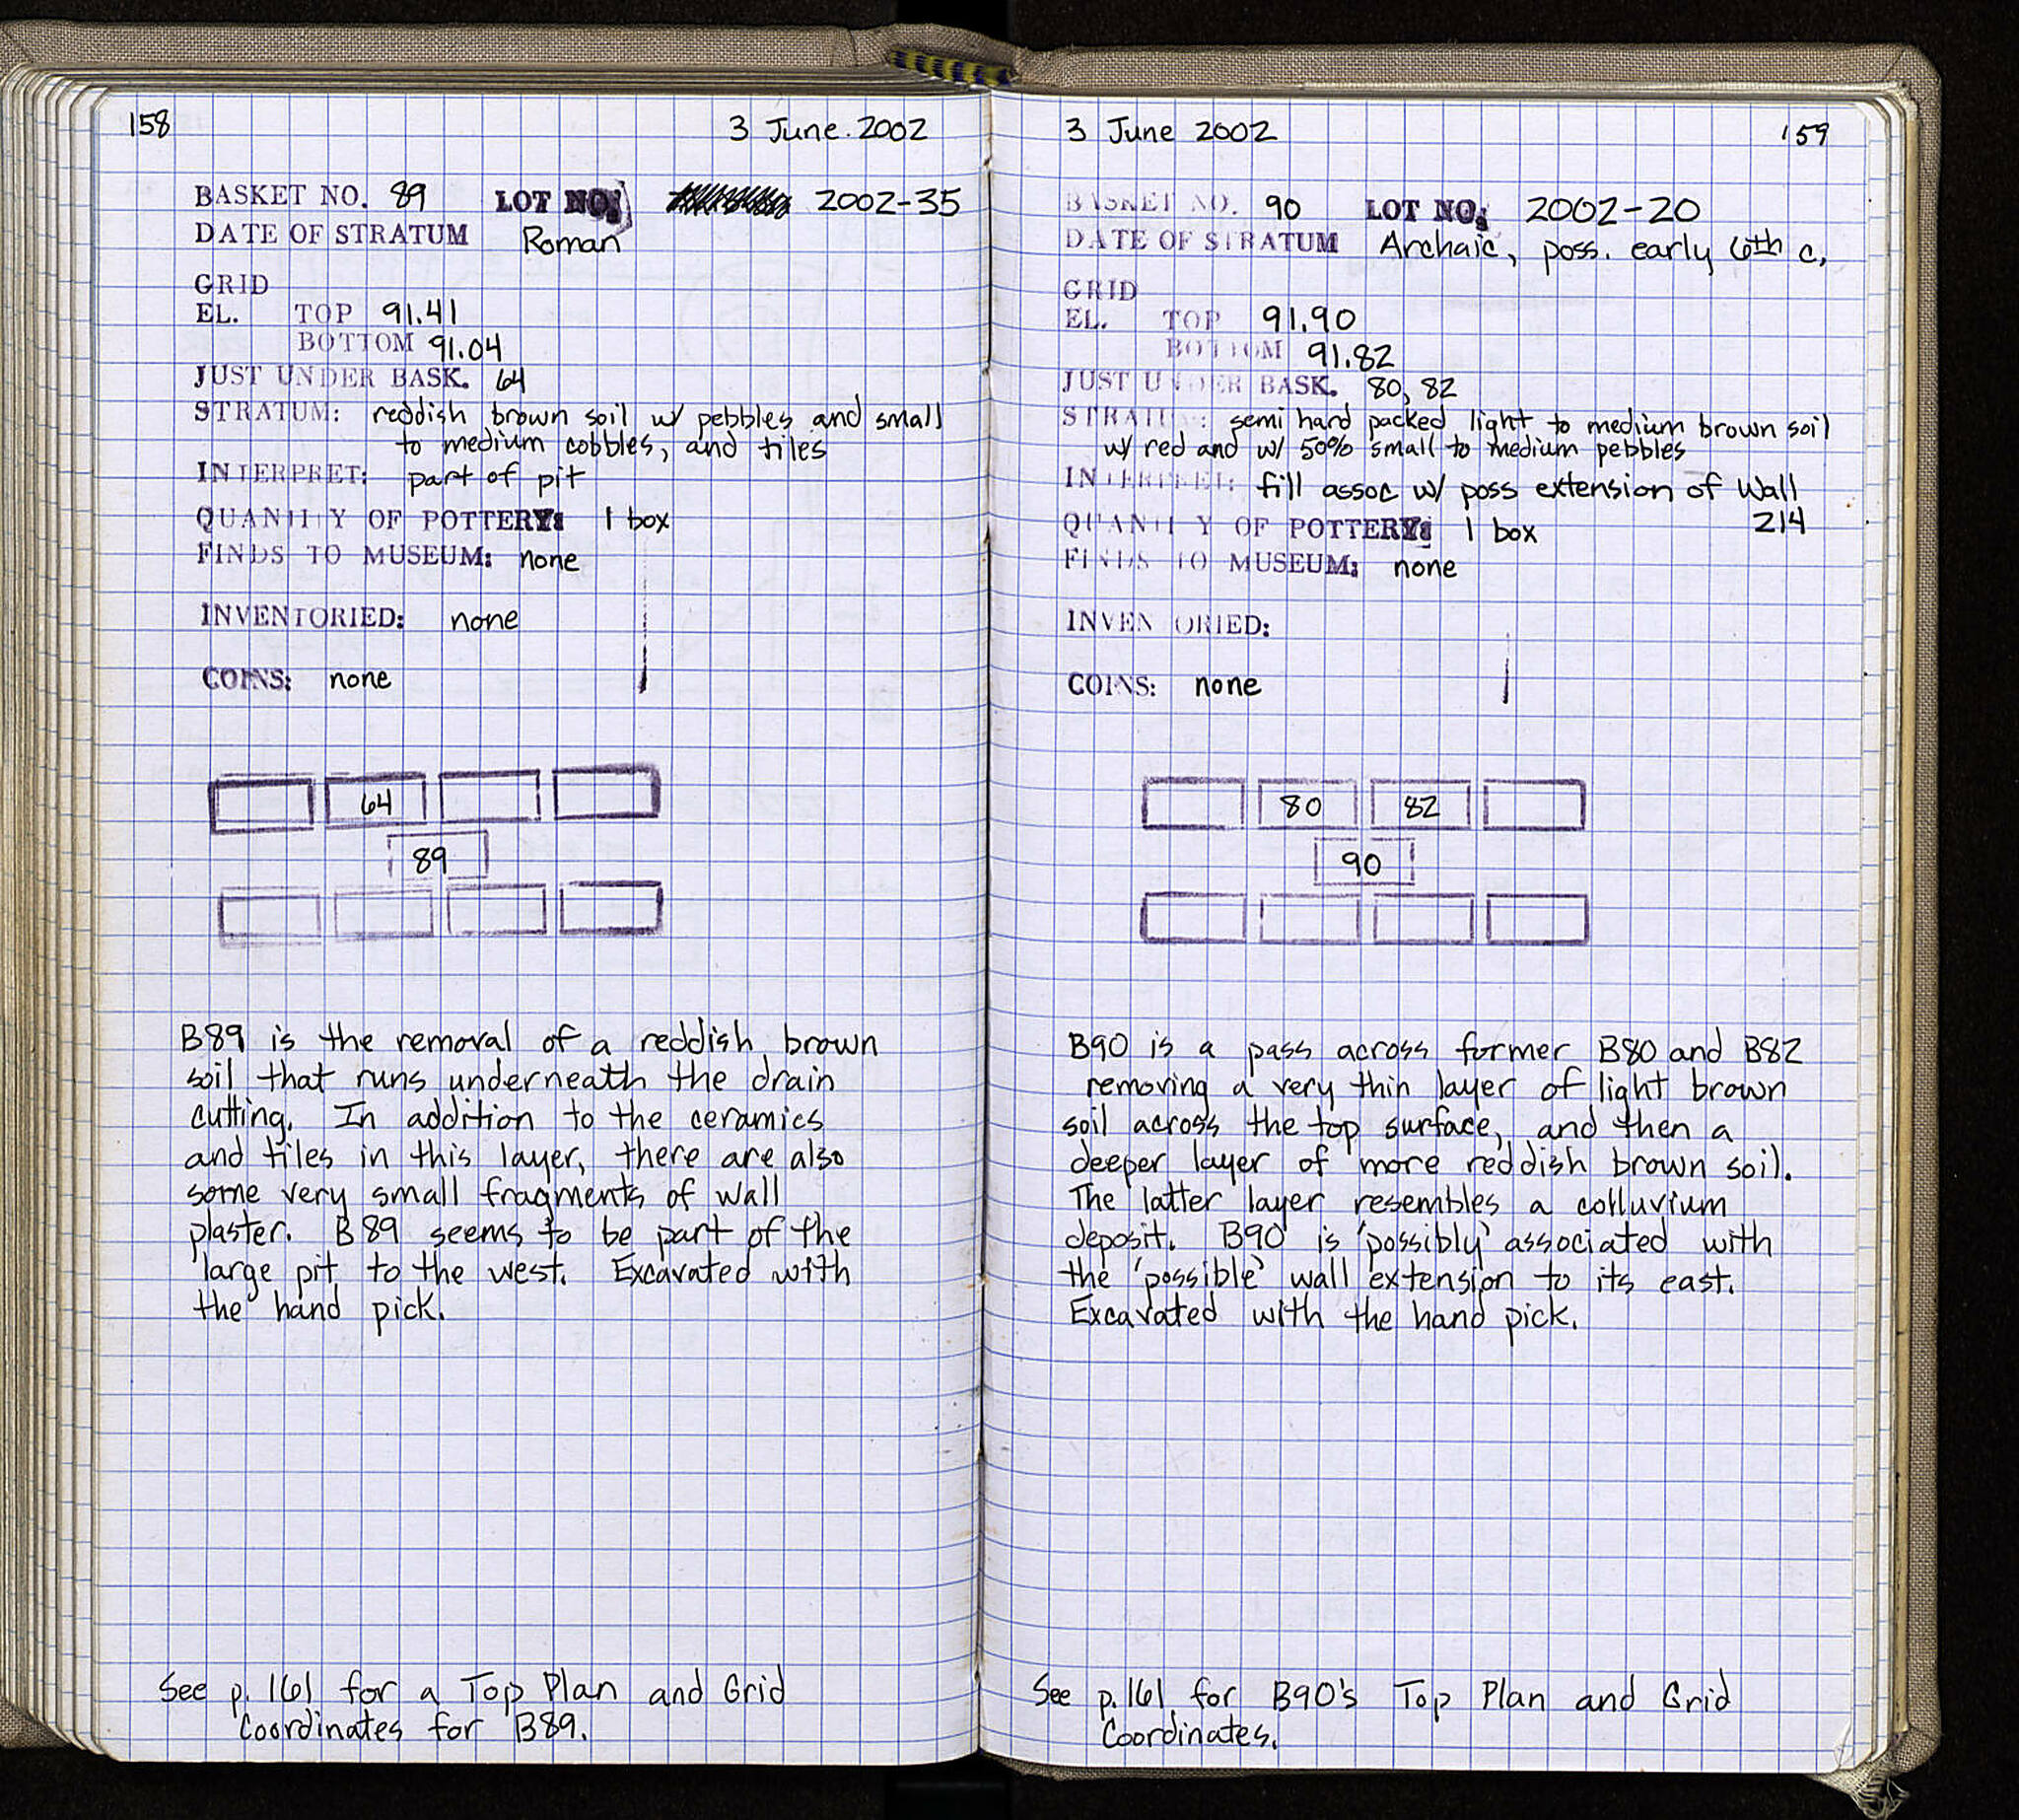 158
3 June. 2002
BASKET NO. 89 LOT NO. 2002-35
DATE OF STRATUM Roman
GRID
EL. TOP 91.41
BOTTOM 91.04
JUST UNDER BASK. 64
STRATUM: reddish brown soil w/ pebbles and small
to medium cobbles, and tiles
INTERPRET: part of pit
QUANTITY OF POTTERY: 1 box
FINDS TO MUSEUM: none
INVENTORIED: none
COINS: none
64
89
B89 is the removal of a reddish brown
soil that runs underneath the drain
cutting. In addition to the ceramics
and tiles in this layer, there are also
some very small fragments of wall
plaster. B89 seems to be part of the
large pit to the west. Excavated with
the hand pick.
See p. 161 for a Top Plan and Grid
Coordinates for B89.
3 June 2002
159
BASKET NO. 90 LOT NO. 2002-20
DATE OF STRATUM Archaic, poss. early 6th c.
GRID
EL. TOP 91.90
BOTTOM 91.82
JUST UNDER BASK. 80, 82
STRATUM: semi hard packed light to medium brown soil
w/ red and w/ 50% small to medium pebbles
INTERPRET: fill assoc w/ poss extension of Wall
214
QUANTITY OF POTTERY: 1 box
FINDS TO MUSEUM: none
INVENTORIED:
COINS: none
80 82
90
B90 is a pass across former B80 and B82
removing a very thin layer of light brown
soil across the top surface, and then a
deeper layer of more reddish brown soil.
The latter layer resembles a colluvium
deposit. B90 is 'possibly' associated with
the 'possible' wall extension to its east.
Excavated with the hand pick.
See p. 161 for B90's Top Plan and Grid
Coordinates.